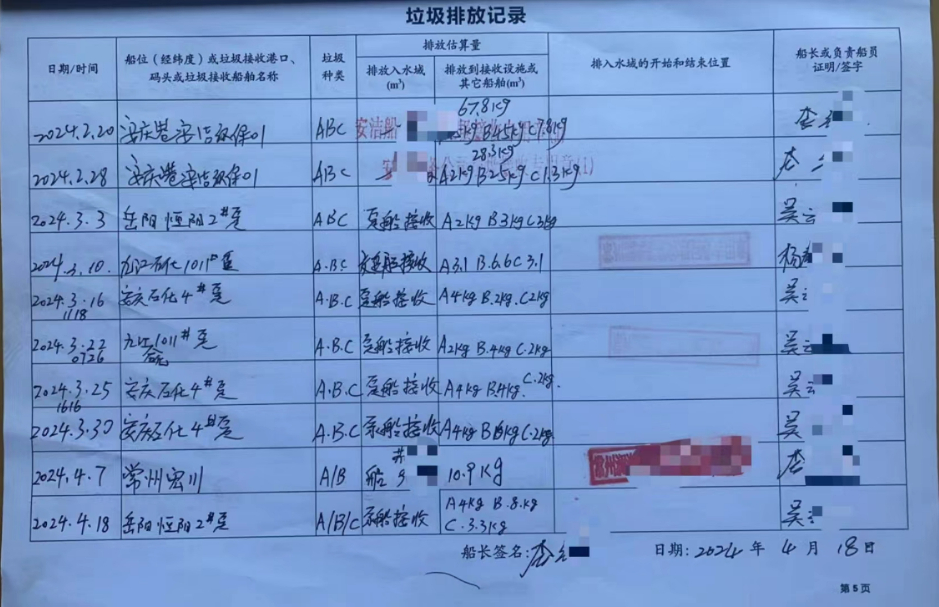 垃圾排放记录
日期/时间 船位（经纬度）或垃圾接收港口、码头或垃圾接收船舶名称 垃圾种类 排放估算量 排入水域的开始和结束位置 船长或负责船员证明/签字
排放入水域(m³) 排放到接收设施或其它船舶(m³)
67.8kg
2024.2.20 安庆港安洁环保01 ABC 安洁船 B45kg C7.8kg 李
28.3kg
2024.2.28 安庆港安洁环保01 ABC A2kg B25kg C1.3kg 李
2024.3.3 岳阳恒阳2# ABC 船接收 A2kg B3kg C3kg 吴云
2024.3.10. 九江石化1011# A.BC 船接收 A3.1 B.6.6 C3.1 杨
2024.3.16 安庆石化4# A.B.C 船接收 A4kg B.2kg C2kg 吴
1118
2024.3.22 九江1011# A.B.C 船接收 A2kg B.4kg C.2kg 吴
0726
2024.3.25 安庆石化4# A.B.C 船接收 A4kg B4kg C.2kg. 吴
1616
2024.3.30 安庆石化4# A.B.C 船接收 A4kg kg C.2kg 吴
2024.4.7 常州宏川 A/B 船 # 10.9kg 常州 李
2024.4.18 岳阳恒阳2# A/B/C 船接收 A4kg B.8.kg C.3.3kg 吴
船长签名: 李 日期: 2024 年 4 月 18 日
第 5 页